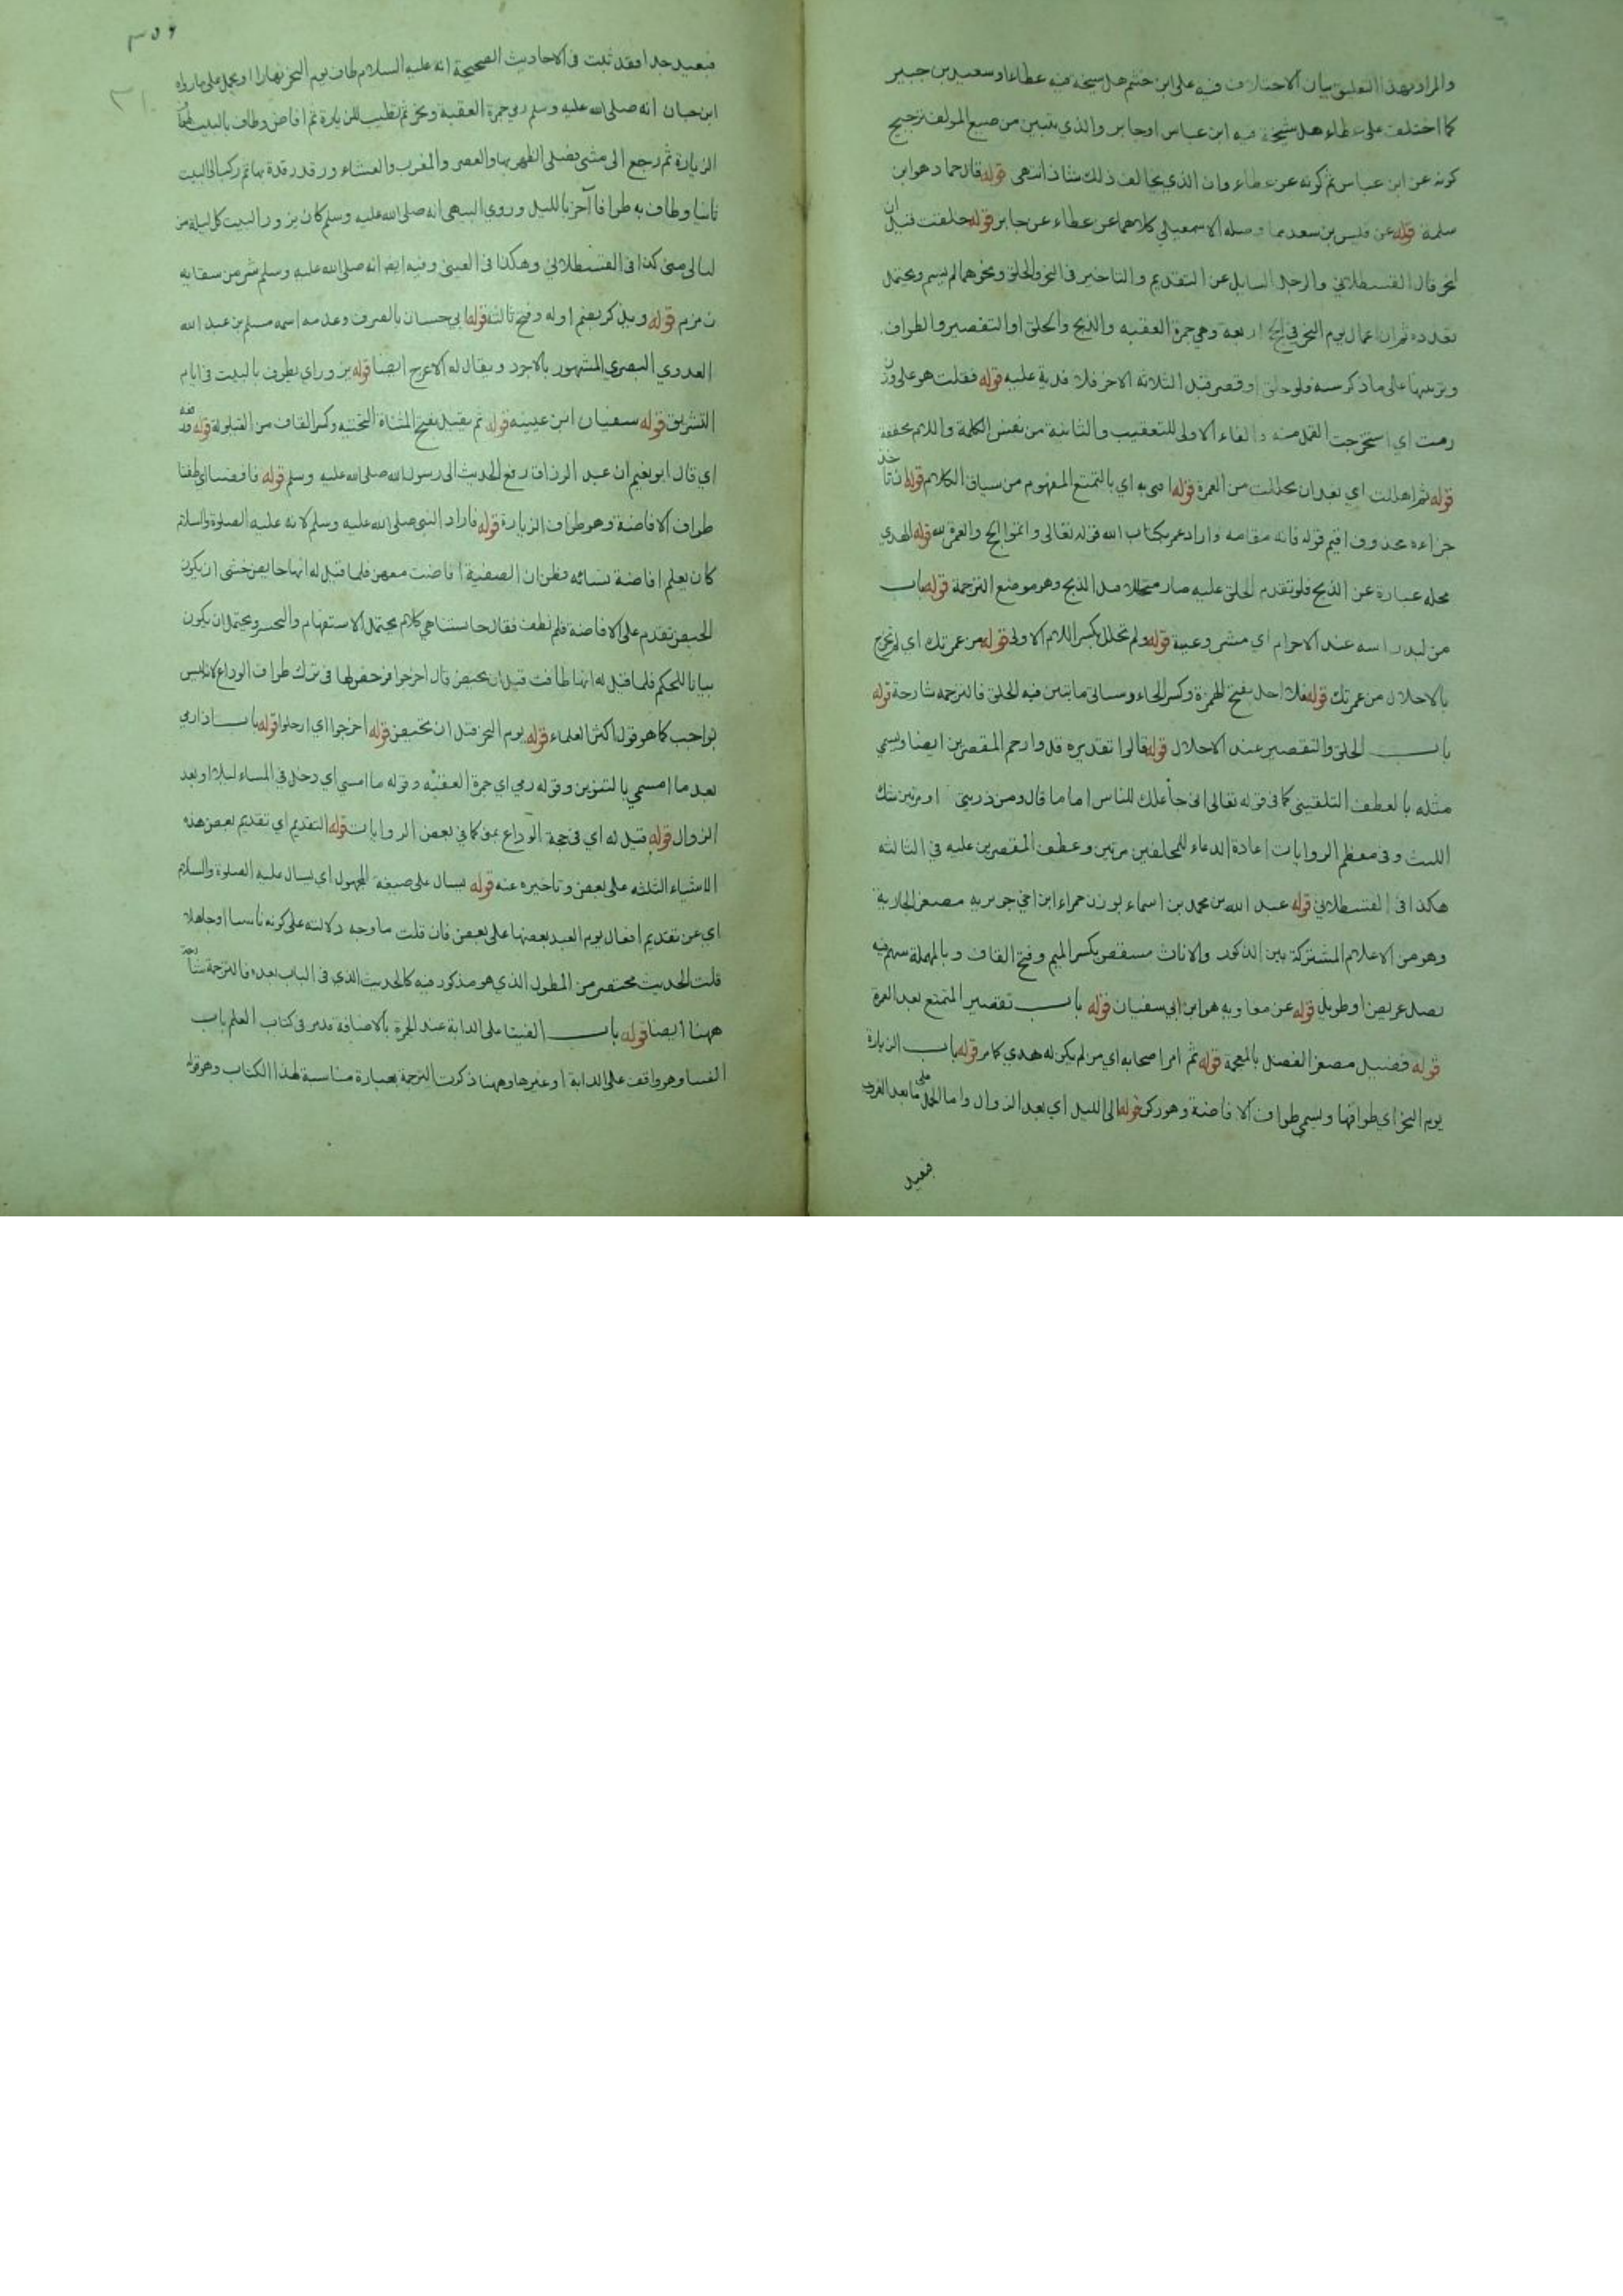 والمراد بهذا التعليق بيان الاختلاف فيه على ابن خثيم هل شيخه فيه عطاء او سعيد بن جبير
كما اختلف على عطاء هل شيخه فيه ابن عباس او جابر والذي يتبين من صنيع المولف ترجيح
كونه عن ابن عباس ثم كونه عن عطاء وان الذي يخالف ذلك شاذ انتهى قوله قال حماد هو ابن
سلمة قوله عن قيس بن سعد مما وصله الاسمعيلي كلاهما عن عطاء عن جابر قوله حلقت قبل ان
انحر قال القسطلاني والرجل السايل عن التقديم والتاخير في النحر والحلق ونحوهما لم يسم ويحتمل
تعدده ثم ان اعمال يوم النحر في الحج اربعة وهي جمرة العقبه والذبح والحلق او التقصير والطواف
وترتيبها على ما ذكر سنه ولو حلق او قصر قبل الثلاثه الاخر فلا فدية عليه قوله ففلت هو على وزن
رمت اي استخرجت القمل منه والفاء الاولى للتعقيب والثانية من نفس الكلمة واللام مخففة
قوله ثم اهللت اي بعد ان تحللت من العمرة قوله افتى به اي بالتمتع المفهوم من سياق الكلام قوله ان ناخذ
جزاءه محذوف اقيم قوله فانه مقامه واراد عمر بكتاب الله قوله تعالى واتموا الحج والعمرة لله قوله الهدي
محله عبارة عن الذبح فلو تقدم الحلق عليه صار متحللا قبل الذبح وهو موضع الترجمة قوله باب
من لبد راسه عند الاحرام اي مشروعية قوله ولم تحلل بكسر اللام الاولى قوله من عمرتك اي لم تخرج
بالاحلال من عمرتك قوله فلا احل بفتح الهمزة وكسر الحاء وسياتي ما يتبين فيه الحلق فالترجمه شارحة قوله
باب الحلق والتقصير عند الاحلال قوله قالوا تقديره قل وارحم المقصرين ايضا ويسمى
مثله بالعطف التلقيني كما في قوله تعالى اني جاعلك للناس اماما قال ومن ذريتي او مرتين شك
الليث وفي معظم الروايات اعادة الدعاء للمحلقين مرتين وعطف المقصرين عليه في الثالثه
هكذا في القسطلاني قوله عبد الله بن محمد بن اسماء بوزن حمراء ابن اخي جويريه مصغر الجارية
وهو من الاعلام المشتركة بين الذكور والاناث مشقص بكسر الميم وفتح القاف وبالمهملة سهم فيه
نصل عريض او طويل قوله عن معاويه هو ابن ابي سفيان قوله باب تقصير المتمتع بعد العمرة
قوله فضيل مصغر الفضل بالمعجمة قوله ثم امر اصحابه اي من لم يكن له هدي كما مر قوله باب الزيارة
يوم النحر اي طوافها ويسمى طواف الافاضة وهو ركن قوله الى الليل اي بعد الزوال واما الحمل على ما بعد الغروب
فبعيد
٣٥٦
٣١٠
فبعيد جدا فقد ثبت في الاحاديث الصحيحة انه عليه السلام طاف يوم النحر نهارا او يحمل على ما رواه
ابن حبان انه صلى الله عليه وسلم رمى جمرة العقبة ونحر ثم تطيب للزيارة ثم افاض وطاف بالبيت طواف
الزيارة ثم رجع الى منى فصلى الظهر بها والعصر والمغرب والعشاء ورقد رقدة بها ثم ركب الى البيت
ثانيا وطاف به طوافا آخر بالليل وروى البيهقي انه صلى الله عليه وسلم كان يزور البيت كل ليلة من
ليالي منى كذا في القسطلاني وهكذا في العيني وفيه ايضا انه صلى الله عليه وسلم شرب من سقايه
زمزم قوله ويذكر بضم اوله وفتح ثالثه قوله ابي حسان بالصرف وعدمه اسمه مسلم بن عبد الله
العدوي البصري المشهور بالاجرد ويقال له الاعرج ايضا قوله يزور اي يطوف بالبيت في ايام
التشريق قوله سفيان ابن عيينه قوله ثم يقيل بفتح المثناة التحتيه وكسر القاف من القيلولة قوله رفعه
اي قال ابو نعيم ان عبد الرزاق رفع الحديث الى رسول الله صلى الله عليه وسلم قوله فافضنا اي طفنا
طواف الافاضة وهو طواف الزيارة قوله فاراد النبي صلى الله عليه وسلم لانه عليه الصلوة والسلام
كان يعلم افاضة نسائه وظن ان الصفية افاضت معهن فلما قيل له انها حايض خشي ان يكون
الحيض تقدم على الافاضة فلم تطف فقال حابستنا هي كلام يحتمل الاستفهام والتحسر ويحتمل ان يكون
بيانا للحكم فلما قيل له انها طافت قبل ان تحيض قال اخرجوا فرخص لها في ترك طواف الوداع لانه ليس
بواجب كما هو قول اكثر العلماء قوله يوم النحر قبل ان تحيض قوله اخرجوا اي ارحلوا قوله باب اذا رمى
بعد ما امسى بالتنوين وقوله رمى اي جمرة العقبه وقوله ما امسى اي دخل في المساء ليلا او بعد
الزوال قوله قيل له اي في حجة الوداع بمنى كما في بعض الروايات قوله التقديم اي تقديم بعض هذه
الاشياء الثلثه على بعض وتاخيره عنه قوله يسال على صيغة المجهول اي يسال عليه الصلوة والسلام
اي عن تقديم افعال يوم العيد بعضها على بعض فان قلت ما وجه دلالته على كونه ناسيا او جاهلا
قلت الحديث مختصر من المطول الذي هو مذكور فيه كالحديث الذي في الباب بعده فالترجمة شارحة
ههنا ايضا قوله باب الفتيا على الدابة عند الجمرة بالاضافة قد مر في كتاب العلم باب
الفتيا وهو واقف على الدابة او غيرها وههنا ذكرت الترجمة بعبارة مناسبة لهذا الكتاب وهو قوله